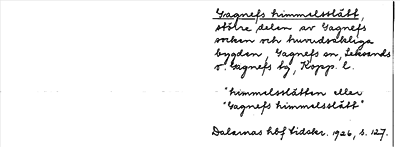 Gagnefs himmelsslätt,
större delen av Gagnefs
socken och huvudsakliga
bygden, Gagnefs sn, Leksands
o. Gagnefs tg, Kopp. l.
"himmelsslätten eller
"Gagnefs himmelsslätt"
Dalarnas hbf tidskr. 1926, s. 127.